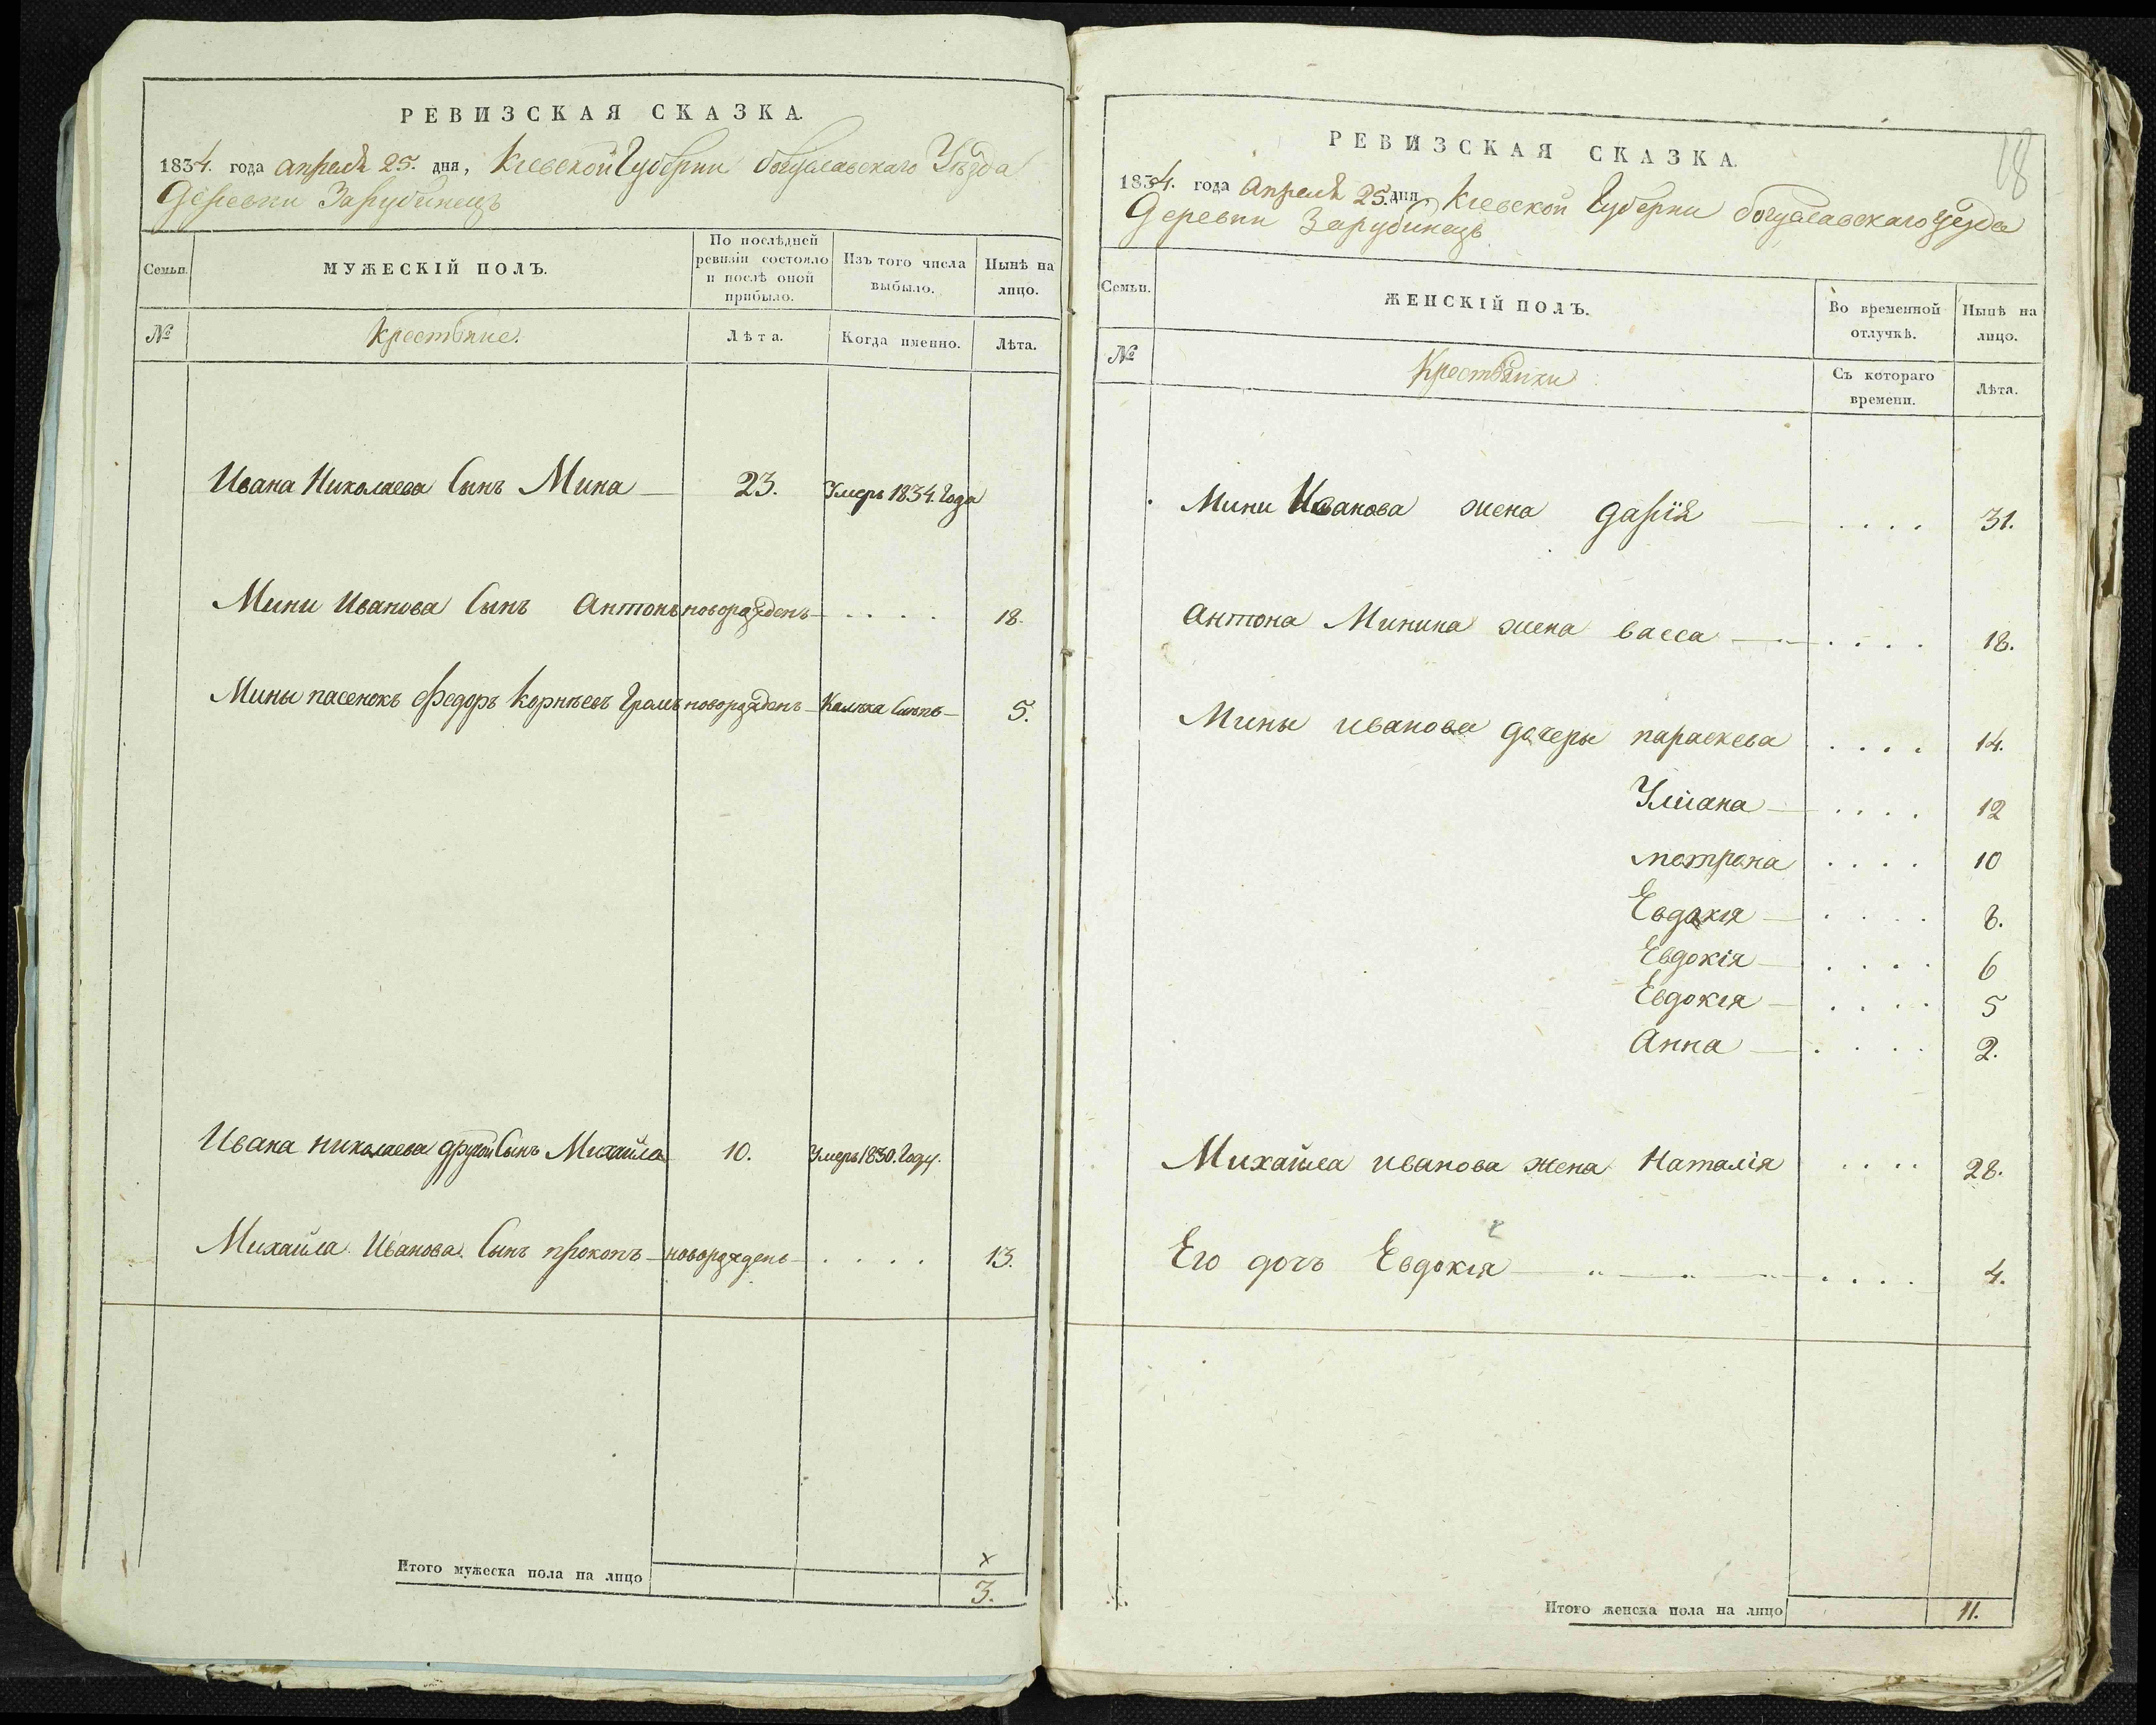 РЕВИЗСКАЯ СКАЗКА.
1834. года апреля 25. дня, Киевской Губернии богуславскаго Уѣзда
Деревни Зарубинецъ
Семьи.
МУЖЕСКІЙ ПОЛЪ.
По послѣдней ревизіи состояло и послѣ оной прибыло.
Изъ того числа выбыло.
Нынѣ на лицо.
№
Крестьяне.
Лѣта.
Когда именно.
Лѣта.
Ивана Николаева Сынъ Мина — 23. Умеръ 1834. Года
Мини Иванова Сынъ Антонъ новорожденъ — . . . . 18.
Мины пасенокъ Федоръ Корнѣевъ Громъ новорожденъ — Калѣка слѣпъ — 5.
Ивана Николаева другой Сынъ Михайла 10. Умеръ 1830. Году.
Михайла Иванова Сынъ прокопъ — новорожденъ — . . . . 13.
Итого мужеска пола на лицо
х
3.
18
РЕВИЗСКАЯ СКАЗКА.
1834. года Апреля 25. дня Киевской Губернии богуславскаго уезда
Деревни Зарубинецъ
Семьи.
ЖЕНСКІЙ ПОЛЪ.
Во временной отлучкѣ.
Нынѣ на лицо.
№
Крестьянки
Съ котораго времени.
Лѣта.
Мини Иванова жена дарія — . . . . 31.
Антона Минина жена васса — . . . . 18.
Мины иванова дочеры параскева . . . . 14.
Улиана — . . . . 12
мотрона . . . . 10
Евдокія — . . . . 8.
Евдокія — . . . . 6
Евдокія — . . . . 5
Анна — . . . . 2.
Михайла иванова жена Наталія . . . . 28.
Его дочъ Евдокія — . . . . 4.
Итого женска пола на лицо
11.